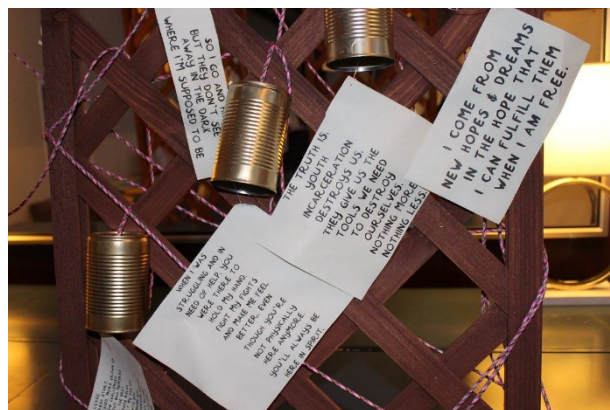 SO I GO AND
BUT THEY DON'T SEE
AWAY IN THE DARK
WHERE I'M SUPPOSED TO BE
I COME FROM
NEW HOPES & DREAMS
IN THE HOPE THAT
I CAN FULFILL THEM
WHEN I AM FREE.
THE TRUTH IS,
YOUTH
INCARCERATION
DESTROYS US.
THEY GIVE US THE
TOOLS WE NEED
TO DESTROY
OURSELVES.
NOTHING MORE
NOTHING LESS.
WHEN I WAS
STRUGGLING AND IN
NEED OF HELP, YOU
WERE THERE TO
HOLD MY HAND,
FIGHT MY FIGHTS
AND MAKE ME FEEL
BETTER. EVEN
THOUGH YOU'RE
NOT PHYSICALLY
HERE ANYMORE
YOU'LL ALWAYS BE
HERE IN SPIRIT.